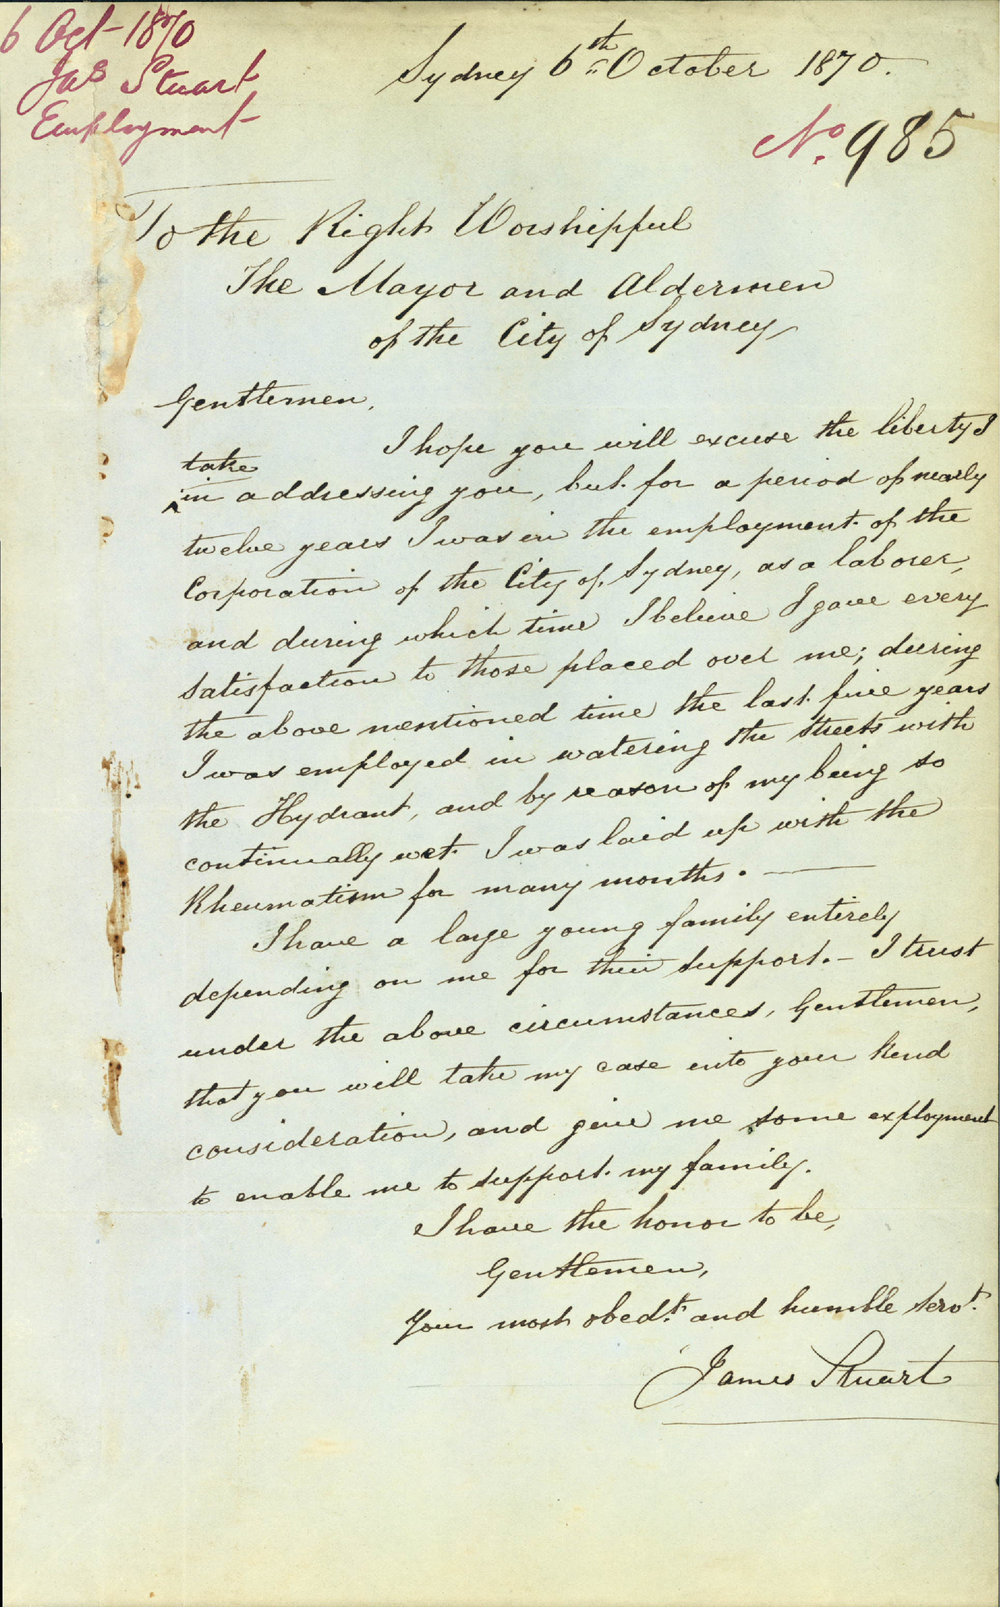 6 Oct 1870
Jas Stuart
Employment
Sydney 6th October 1870.
No. 985
To the Right Worshipful
The Mayor and Aldermen
of the City of Sydney
Gentlemen,
I hope you will excuse the liberty I
take
in addressing you, but for a period of nearly
twelve years I was in the employment of the
Corporation of the City of Sydney, as a laborer,
and during which time I believe I gave every
satisfaction to those placed over me; during
the above mentioned time the last five years
I was employed in watering the streets with
the Hydrant, and by reason of my being so
continually wet I was laid up with the
Rheumatism for many months. —
I have a large young family entirely
depending on me for their support. – I trust
under the above circumstances, Gentlemen,
that you will take my case into your kind
consideration, and give me some exployment
to enable me to support my family.
I have the honor to be,
Gentlemen,
Your most obedt. and humble Servt.
James Stuart